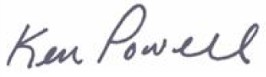 Ken Powell